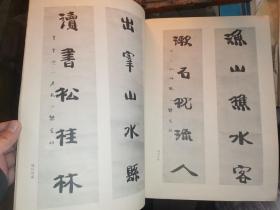 漁山樵水客
漱石枕流人
出宰山水縣
讀書松桂林